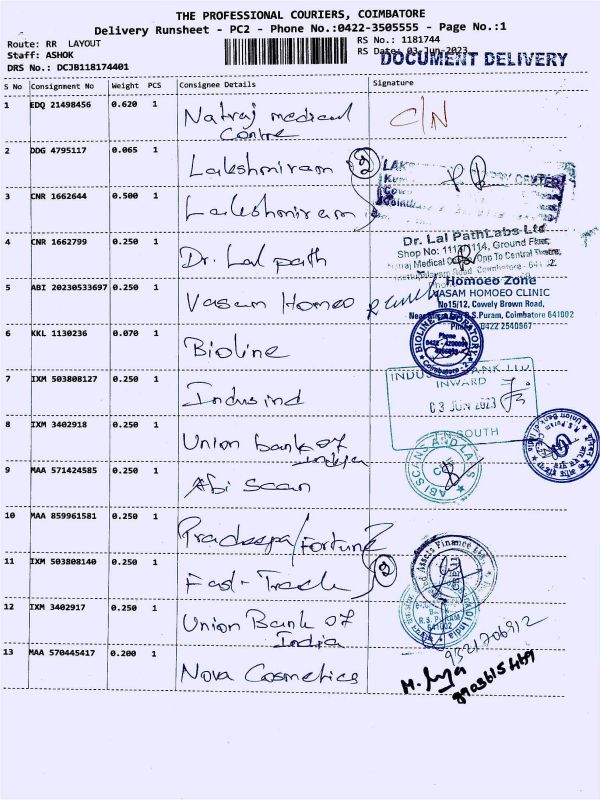 THE PROFESSIONAL COURIERS, COIMBATORE
Delivery Runsheet - PC2 - Phone No.:0422-3505555 - Page No.:1
Route: RR LAYOUT
RS No.: 1181744
Staff: ASHOK
RS Date: 03-Jun-2023
DRS No.: DCJB118174401
DOCUMENT DELIVERY
S No Consignment No Weight PCS Consignee Details Signature
1 EDQ 21498456 0.620 1 Natraj medical
Centre
C/N
2 DDG 4795117 0.065 1 Lakshmiram
2
3 CNR 1662644 0.500 1 Lakshmiram
4 CNR 1662799 0.250 1 Dr. Lal path
Dr. Lal PathLabs Ltd
Ground Floor,
5 ABI 20230533697 0.250 1 Vasan Homeo
Homoeo Zone
VASAM HOMOEO CLINIC
No15/12, Cowely Brown Road,
R.S.Puram, Coimbatore 641002
0422 2540367
6 KKL 1130236 0.070 1 Bioline
BIOLINE LABORATORY
Phone
Coimbatore - 2
7 IXM 503808127 0.250 1 Indusind
INWARD
03 JUN 2023
SOUTH
8 IXM 3402918 0.250 1 Union bank of
India
Union Bank of India
9 MAA 571424585 0.250 1 Abi Scan
ABI SCANS AND LABS
10 MAA 859961581 0.250 1 Pradeepa/Fortune
11 IXM 503808140 0.250 1 Fast-Track
2
Assets Finance Ltd.
12 IXM 3402917 0.250 1 Union Bank of
India
13 MAA 570445417 0.200 1 Nova Cosmetics